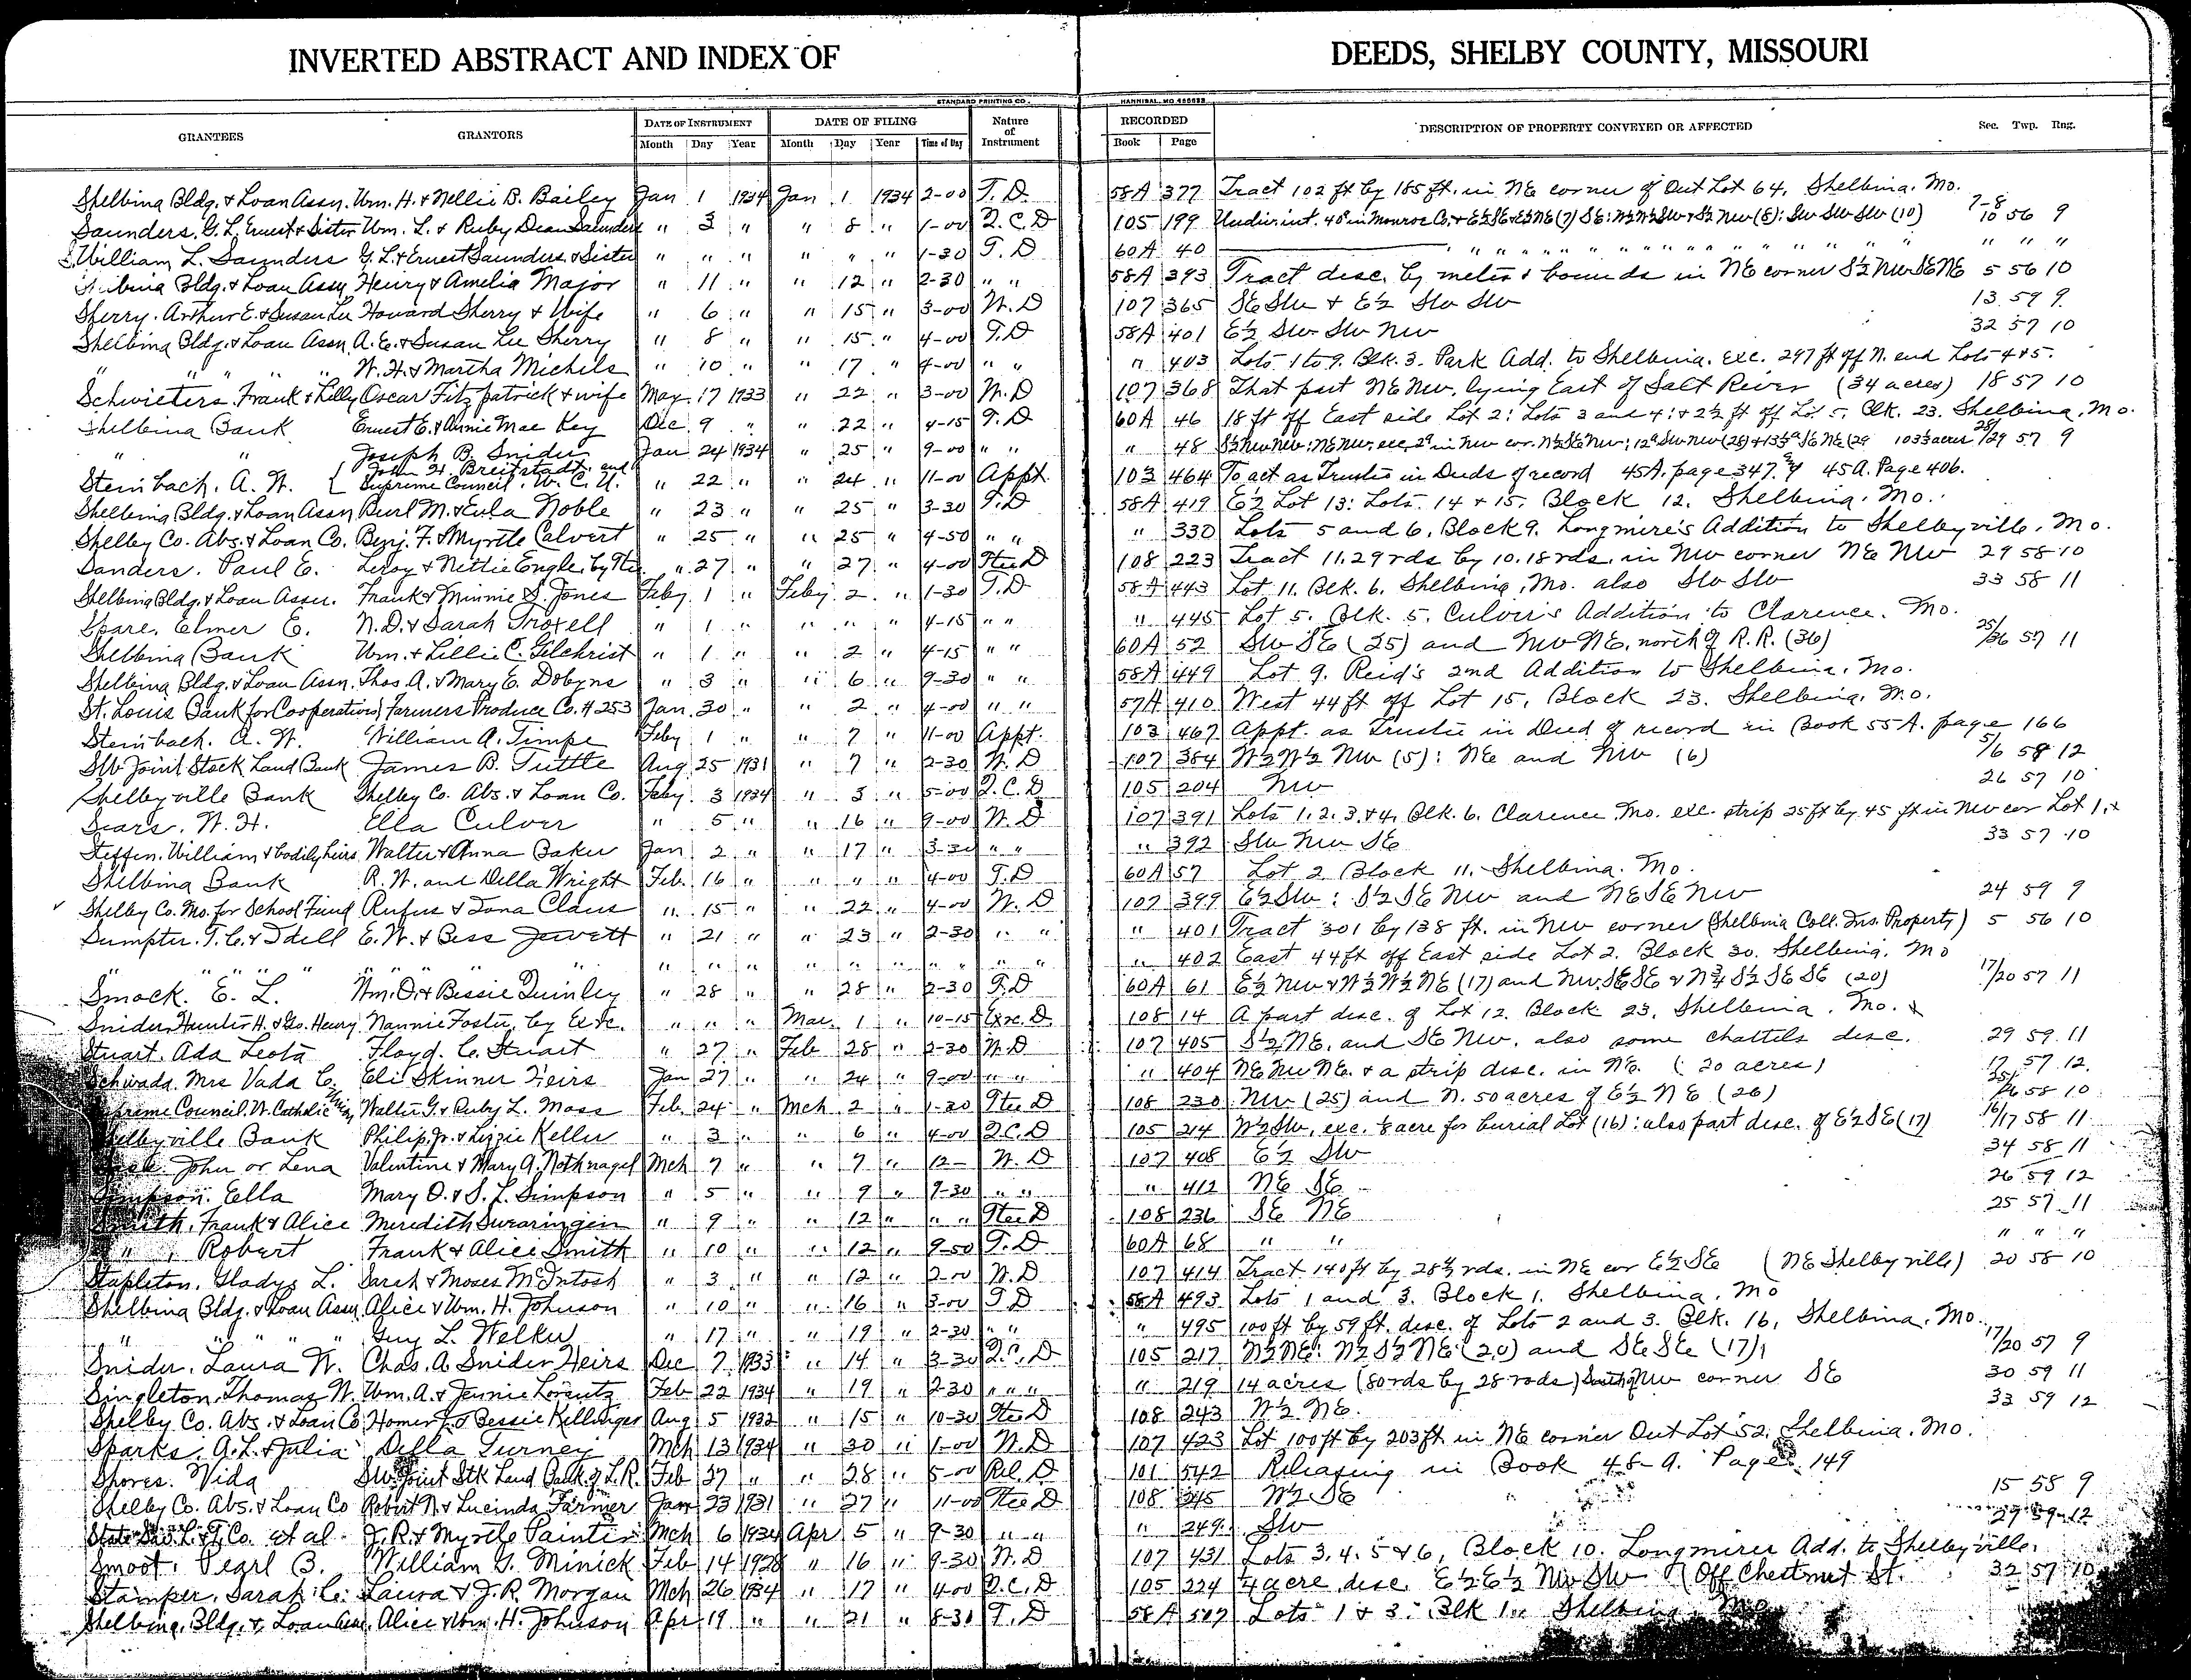 INVERTED ABSTRACT AND INDEX OF DEEDS, SHELBY COUNTY, MISSOURI
STANDARD PRINTING CO. HANNIBAL, MO.
GRANTEES GRANTORS DATE OF INSTRUMENT DATE OF FILING Nature of Instrument RECORDED DESCRIPTION OF PROPERTY CONVEYED OR AFFECTED Sec. Twp. Rng.
Month Day Year Month Day Year Time of Day Book Page
Shelbina Bldg. & Loan Assn. Wm. H. & Nellie B. Bailey Jan 1 1934 Jan 1 1934 2-00 T.D. 58A 377 Tract 102 ft by 185 ft. in NE corner of Out Lot 64, Shelbina, Mo.
Saunders, G.L. Ernest & Sister Wm. L. & Ruby Dean Saunders " 3 " " 8 " 1-00 Q.C.D 105 199 Undiv. int. 40a in Monroe Co. & E½SE & E½NE (7) SE: N½N½SW & S½ NW (8): SW SW SW (10) 7-8 10 56 9
William L. Saunders G.L. & Ernest Saunders & Sister " " " " " " 1-30 T.D 60A 40 " " " " " " " " " " " " " " "
Bldg. & Loan Assn Henry & Amelia Major " 11 " " 12 " 2-30 " " 58A 393 Tract desc. by metes & bounds in NE corner S½ NW SE NE 5 56 10
Sherry, Arthur E. & Susan Lee Howard Sherry & Wife " 6 " " 15 " 3-00 W.D 107 365 SE SW & E½ SW SW 13 59 9
Shelbina Bldg. & Loan Assn A.E. & Susan Lee Sherry " 8 " " 15 " 4-00 T.D 58A 401 E½ SW SW NW 32 57 10
" " " " W.H. & Martha Michels " 10 " " 17 " 4-00 " " " 403 Lots 1 to 9. Blk. 3. Park Add. to Shelbina. exc. 297 ft off N. end Lots 4 & 5.
Schwieters, Frank & Lilly Oscar Fitzpatrick & wife May 17 1933 " 22 " 3-00 W.D 107 368 That part NE NW. lying East of Salt River (34 acres) 18 57 10
Shelbina Bank Ernest E. & Annie Mae Key Dec 9 " " 22 " 4-15 T.D 60A 46 18 ft off East side Lot 2: Lots 3 and 4: & 2½ ft off Lot 5. Blk. 23. Shelbina, Mo.
" " Joseph B. Snider Jan 24 1934 " 25 " 9-00 " " " 48 S½ NW NW: NE NW. exc. 2a in NW cor. N½ SE NW; 12a SW NW (28) & 13½a SE NE (29 103½ acres 28/29 57 9
Steinbach. A.W. { John H. Breitstadt and Supreme Council. W.C.U. " 22 " " 24 " 11-00 Appt. 103 464 To act as Trustee in Deeds of record 45A. page 347. & 45A. Page 406.
Shelbina Bldg. & Loan Assn Burl M. & Eula Noble " 23 " " 25 " 3-30 T.D 58A 419 E½ Lot 13: Lots 14 & 15, Block 12. Shelbina. Mo.
Shelby Co. Abs. & Loan Co. Benj. F. & Myrtle Calvert " 25 " " 25 " 4-50 " " " 330 Lots 5 and 6, Block 9. Longmire's Addition to Shelbyville, Mo.
Sanders. Paul E. Leroy & Nettie Engle, by Tte. " 27 " " 27 " 4-00 Ttee D 108 223 Tract 11.29 rds by 10.18 rds. in NW corner NE NW 29 58 10
Shelbina Bldg. & Loan Assn. Frank & Minnie S. Jones Feby 1 " Feby 2 " 1-30 T.D 58A 443 Lot 11. Blk. 6. Shelbina, Mo. also SW SW 33 58 11
Spare, Elmer E. N.D. & Sarah Troxell " 1 " " " " 4-15 " " " 445 Lot 5. Blk. 5. Culver's Addition to Clarence. Mo.
Shelbina Bank Wm. & Lillie C. Gilchrist " 1 " " 2 " 4-15 " " 60A 52 SW SE (25) and NW NE. north of R.R. (36) 25/36 57 11
Shelbina Bldg. & Loan Assn. Thos. A. & Mary E. Dobyns " 3 " " 6 " 9-30 " " 58A 449 Lot 9. Reid's 2nd Addition to Shelbina. Mo.
St. Louis Bank for Cooperatives Farmers Produce Co. #253 Jan. 30 " " 2 " 4-00 " " 57A 410 West 44 ft off Lot 15, Block 23. Shelbina. Mo.
Steinbach. A.W. William A. Timpe Feby 1 " " 7 " 11-00 Appt. 103 467 Appt. as Trustee in Deed of record in Book 55A. page 166
SW Joint Stock Land Bank James B. Tuttle Aug 25 1931 " 7 " 2-30 W.D 107 384 W½ W½ NW (5): NE and NW (6) 5/6 58 12
Shelbyville Bank Shelby Co. Abs. & Loan Co. Feby. 3 1934 " 3 " 5-00 Q.C.D 105 204 NW 26 57 10
Sears. W.H. Ella Culver " 5 " " 16 " 9-00 W.D 107 391 Lots 1. 2. 3. & 4. Blk. 6. Clarence Mo. exc. strip 25 ft by 45 ft in NW cor Lot 1. &
Steffen. William & bodily heirs Walter & Anna Baker Jan 2 " " 17 " 3-30 " " " 392 SW NW SE 33 57 10
Shelbina Bank R.W. and Della Wright Feb. 16 " " " " 4-00 T.D 60A 57 Lot 2 Block 11. Shelbina. Mo.
Shelby Co. Mo. for School Fund Rufus & Zona Claus " 15 " " 22 " 4-00 W.D 107 399 E½ SW: S½ SE NW and NE SE NW 24 59 9
Sumpter. T.C. & Idell E.W. & Bess Jewett " 21 " " 23 " 2-30 " " " 401 Tract 301 by 138 ft. in NW corner (Shelbina Coll. Ins. Property) 5 56 10
" " " " " " " " " " " " " " " " " 402 East 44 ft off East side Lot 2. Block 30. Shelbina. Mo
Smock. E.L. Wm. O. & Bessie Quinley " 28 " " 28 " 2-30 T.D 60A 61 E½ NW & W½ W½ NE (17) and NW SE SE & N¾ S½ SE SE (20) 17/20 57 11
Snider, Hunter H. & Geo. Henry Nannie Foster, by Exrc. " " " Mar. 1 " 10-15 Exrc. D. 108 14 A part desc. of Lot 12. Block 23. Shelbina. Mo. &
Stuart. Ada Leota Floyd. C. Stuart " 27 " Feb 28 " 2-30 W.D 107 405 S½ NE. and SE NW. also some chattels desc. 29 59 11
Schwada. Mrs Vada C. Eli Skinner Heirs Jan 27 " " 24 " 9-00 " " " 404 NE NW NE. & a strip desc. in NE. (20 acres) 17 57 12
Supreme Council. W. Catholic Union Walter G. & Ruby L. Moss Feb 24 " Mch 2 " 1-30 Ttee D 108 230 NW (25) and N. 50 acres of E½ NE (26) 25/26 58 10
Shelbyville Bank Philip Jr. & Lizzie Keller " 3 " " 6 " 4-00 Q.C.D 105 214 W½ SW, exc. ⅛ acre for burial Lot (16): also part desc. of E½ SE (17) 16/17 58 11
John or Lena Valentine & Mary A. Nothnagel Mch 7 " " 7 " 12- W.D 107 408 E½ SW 34 58 11
Simpson. Ella Mary O. & S.L. Simpson " 5 " " 9 " 9-30 " " " 412 NE SE 26 59 12
Smith, Frank & Alice Meredith Swearingen " 9 " " 12 " " " Ttee D 108 236 SE NE 25 57 11
" , Robert Frank & Alice Smith " 10 " " 12 " 9-50 T.D 60A 68 " " " " "
Stapleton. Gladys L. Sarah & Moses McIntosh " 3 " " 12 " 2-00 W.D 107 414 Tract 140 ft by 28½ rds. in NE cor E½ SE (NE Shelbyville) 20 58 10
Shelbina Bldg. & Loan Assn Alice & Wm. H. Johnson " 10 " " 16 " 3-00 T.D 58A 493 Lots 1 and 3. Block 1. Shelbina. Mo
" " " " " Guy L. Welker " 17 " " 19 " 2-30 " " " 495 100 ft by 59 ft. desc. of Lots 2 and 3. Blk. 16, Shelbina, Mo.
Snider. Laura W. Chas. A. Snider Heirs Dec 7 1933 " 14 " 3-30 Q.C.D 105 217 N½ NE: N½ S½ NE (20) and SE SE (17) 17/20 57 9
Singleton. Thomas W. Wm. A. & Jennie Lorentz Feb 22 1934 " 19 " 2-30 " " " " 219 14 acres (80 rds by 28 rods) South of NW corner SE 30 59 11
Shelby Co. Abs. & Loan Co Homer J. & Bessie Killinger Aug 5 1932 " 15 " 10-30 Ttee D 108 243 W½ NE. 33 59 12
Sparks. A.L. & Julia Della Turney Mch 13 1934 " 30 " 1-00 W.D 107 423 Lot 100 ft by 203 ft in NE corner Out Lot 52. Shelbina. Mo.
Shores. Vida SW Joint Stk Land Bank of L.R. Feb 27 " " 28 " 5-00 Rel. D 101 542 Releasing in Book 48-A. Page 149
Shelby Co. Abs. & Loan Co Robert N. & Lucinda Farmer Jan 23 1931 " 27 " 11-00 Ttee D 108 245 W½ SE 15 58 9
State Sav. L. & T. Co. et al J.R. & Myrtle Painter Mch 6 1934 Apr 5 " 9-30 " " " 249 SW 29 59 12
Smoot, Pearl B. William G. Minick Feb 14 1928 " 16 " 9-30 W.D 107 431 Lots 3. 4. 5 & 6, Block 10. Longmires Add. to Shelbyville.
Stamper. Sarah C. Laura & J.R. Morgan Mch 26 1934 " 17 " 4-00 Q.C.D 105 224 ¼ acre desc. E½ E½ NW SW (Off Chestnut St. 32 57 10
Shelbina, Bldg. & Loan Assn. Alice & Wm. H. Johnson Apr 19 " " 21 " 8-30 T.D 58A 507 Lots 1 & 3. Blk 1. Shelbina Mo